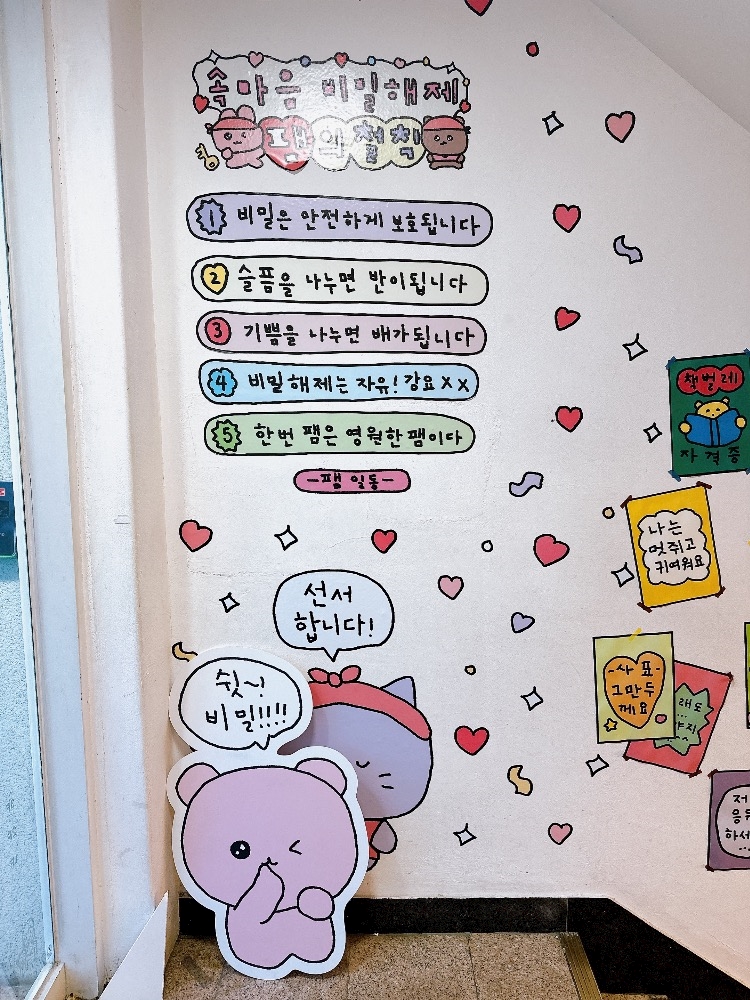 속마음 비밀해제
팸 일철칙
1 비밀은 안전하게 보호됩니다
2 슬픔을 나누면 반이됩니다
3 기쁨을 나누면 배가됩니다
4 비밀해제는 자유! 강요 X X
5 한번 팸은 영원한 팸이다
-팸 일동-
선서
합니다!
쉿~!
비밀!!!!
책벌레
자격증
나는
멋쥐고
귀여워요
-사표-
그만두
께요
래도